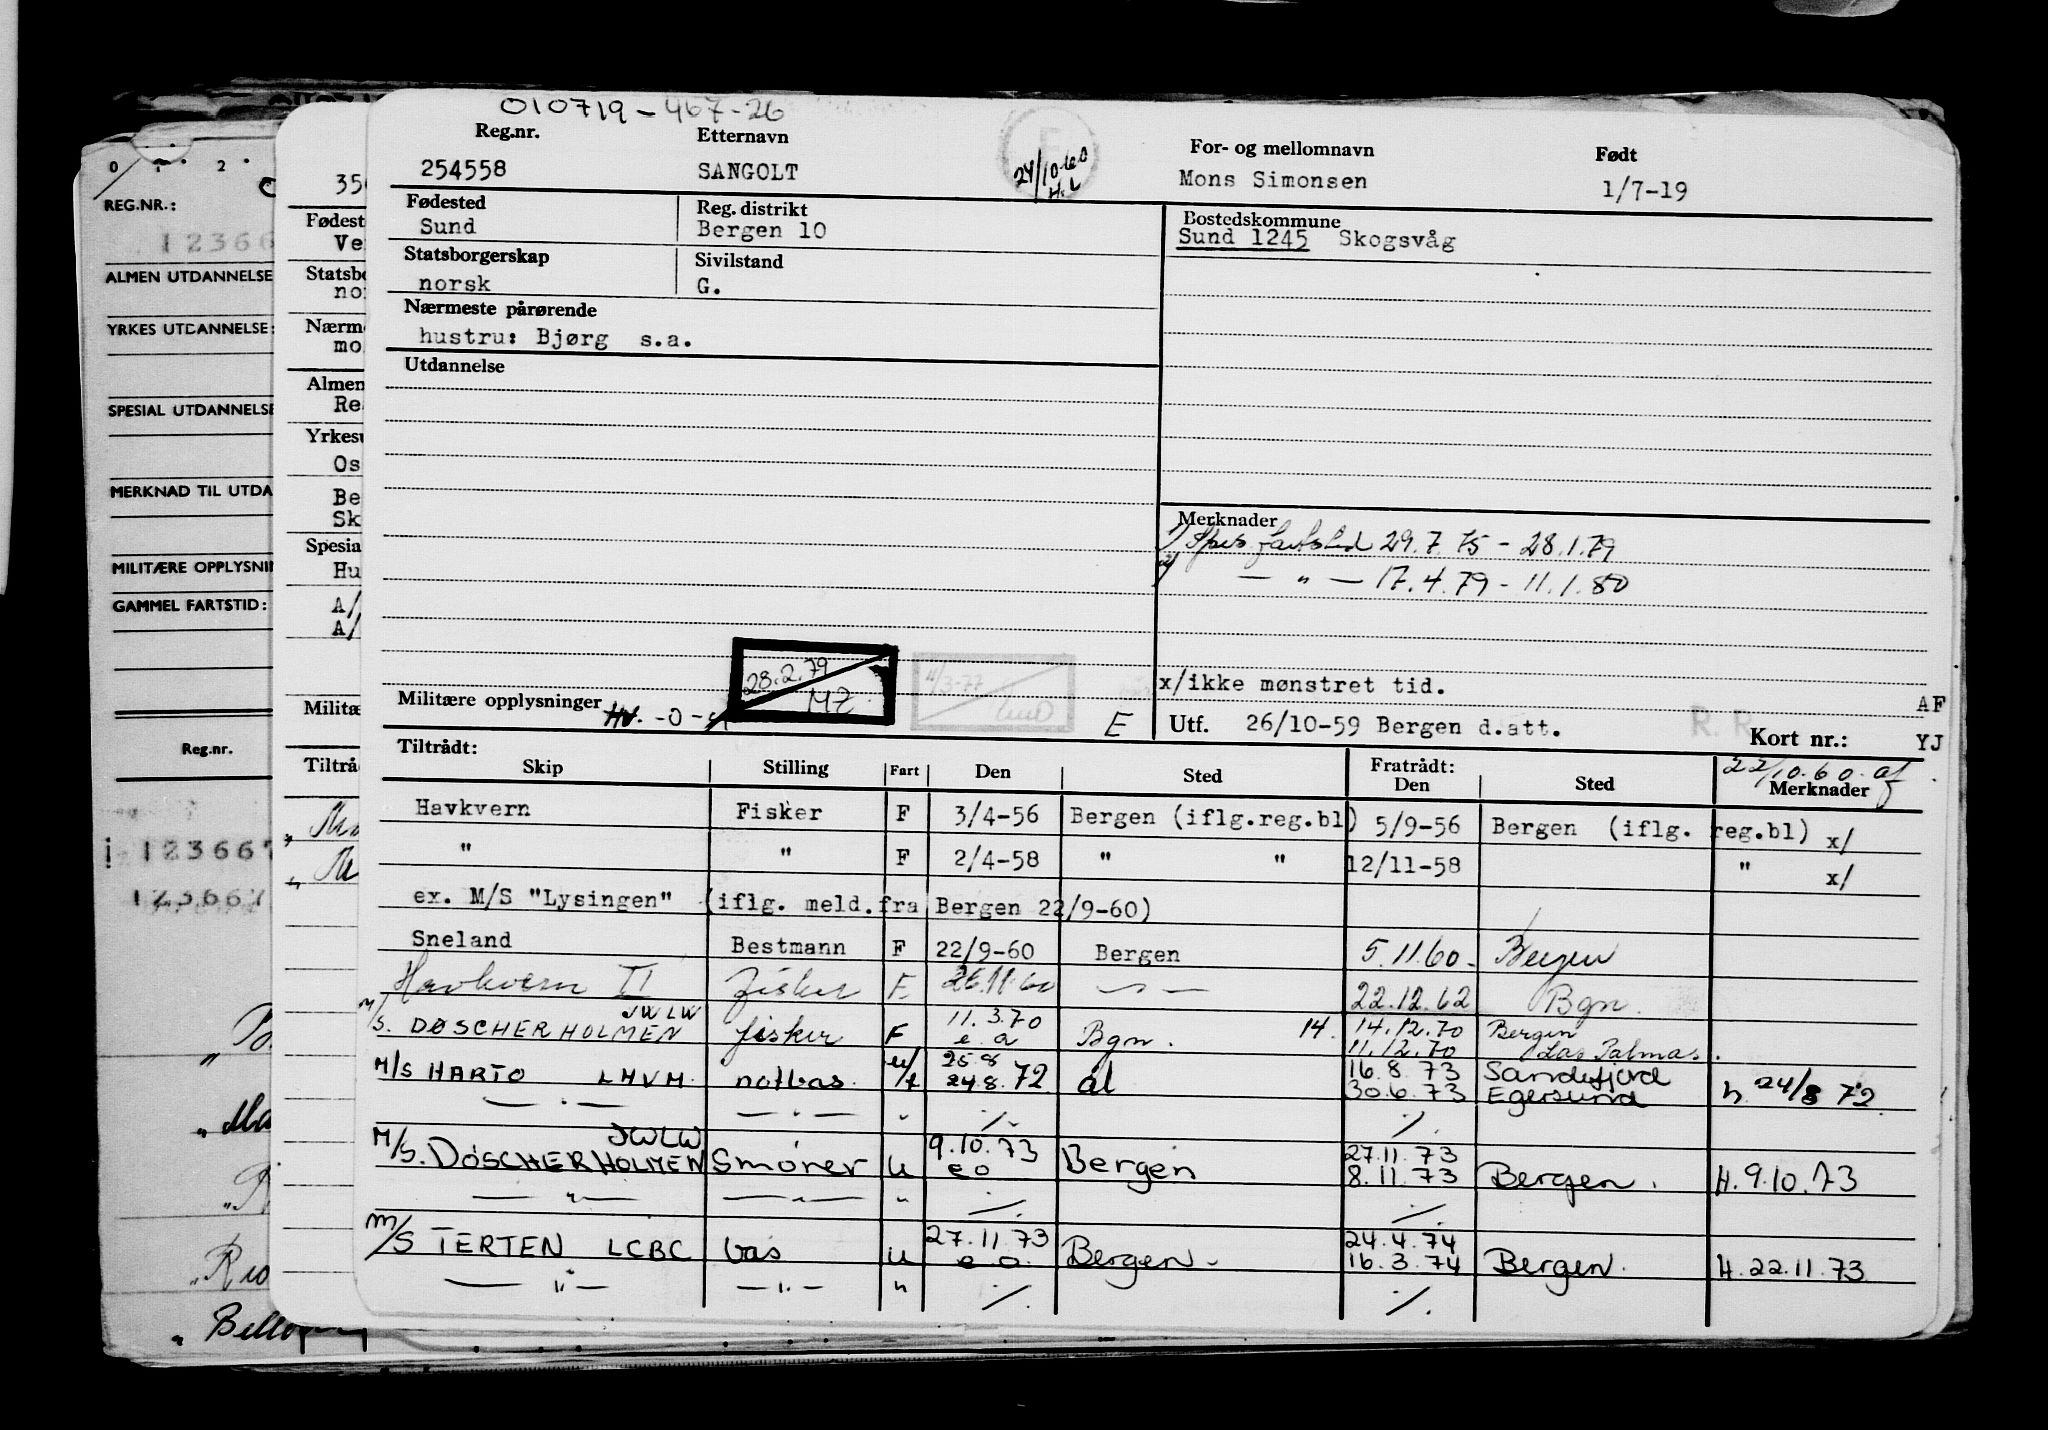 010719-467-26
Reg.nr. Etternavn For- og mellomnavn Født
254558 SANGOLT 24/10-60 H.L Mons Simonsen 1/7-19
Fødested Reg. distrikt Bostedskommune
Sund Bergen 10 Sund 1245 Skogsvåg
Statsborgerskap Sivilstand
norsk G.
Nærmeste pårørende
hustru: Bjørg s.a.
Utdannelse
Merknader
1) Spes. fartstid 29.7.75 - 28.1.79
2) — " — 17.4.79 - 11.1.80
28.2.79
MZ
4/3-77
x/ikke mønstret tid.
Militære opplysninger HV. -0-
E
Utf. 26/10-59 Bergen d.att. R. R Kort nr.: AF
YJ
22/10.60. af
Tiltrådt: Fratrådt:
Skip Stilling Fart Den Sted Den Sted Merknader
Havkvern Fisker F 3/4-56 Bergen (iflg.reg.bl) 5/9-56 Bergen (iflg. reg.bl) x/
" " F 2/4-58 " " 12/11-58 " x/
ex. M/S "Lysingen" (iflg. meld.fra Bergen 22/9-60)
Sneland Bestmann F 22/9-60 Bergen 5.11.60. Bergen
Havkvern II Fisker F. 26.11.60 — " — 22.12.62 Bgn.
M/S. DØSCHERHOLMEN JWLW fisker F 11.3.70 e.a Bgn. 14. 14.12.70 Bergen
11.12.70 Las Palmas.
M/S HARTO LMVM notbas u/f 25.8 24.8.72 ål 16.8.73 Sandefjord
30.6.73 Egersund h. 24/8 72.
— " — — " — " ./. ./.
M/S. DØSCHERHOLMEN JWLW Smører u 9.10.73 e o Bergen 27.11.73
8.11.73 Bergen. H.9.10.73
— " — — " — " ./. ./.
M/S TERTEN LCBC bas u 27.11.73 e.o. Bergen. 24.4.74
16.3.74 Bergen. H.22.11.73
— " — — " — " ./. ./.
0 1 2
REG.NR.:
12366
ALMEN UTDANNELSE
YRKES UTDANNELSE:
SPESIAL UTDANNELSE
MERKNAD TIL UTDA
MILITÆRE OPPLYSNI
GAMMEL FARTSTID:
Reg.nr.
123667
123667
Fødest
Ve
Statsbo
no
Nærm
mo
Almen
Re
Yrkesu
Os
Be
Sk
Spesia
Hu
A/
A/
Militæ
Tiltrå